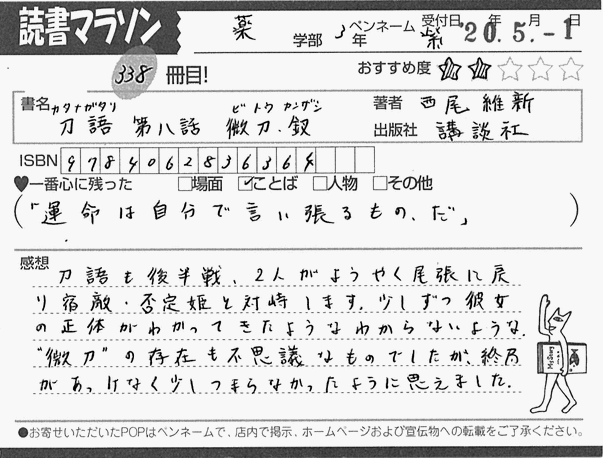 読書マラソン
薬 学部 3年 ペンネーム 紫 受付日 '20年5.月-1日
338 冊目!
おすすめ度 ★★☆☆☆
書名 カタナガタリ ビトウ カンザシ
刀語 第八話 微刀・釵
著者 西尾維新
出版社 講談社
ISBN 9784062836364
♥一番心に残った □場面 ☑ことば □人物 □その他
(「運命は自分で言い張るもの、だ」)
感想
刀語も後半戦、2人がようやく尾張に戻
り宿敵・否定姫と対峙します。少しずつ彼女
の正体がわかってきたようなわからないような。
"微刀"の存在も不思議なものでしたが、終局
があっけなく少しつまらなかったように思えました。
●お寄せいただいたPOPはペンネームで、店内で掲示、ホームページおよび宣伝物への転載をご了承ください。